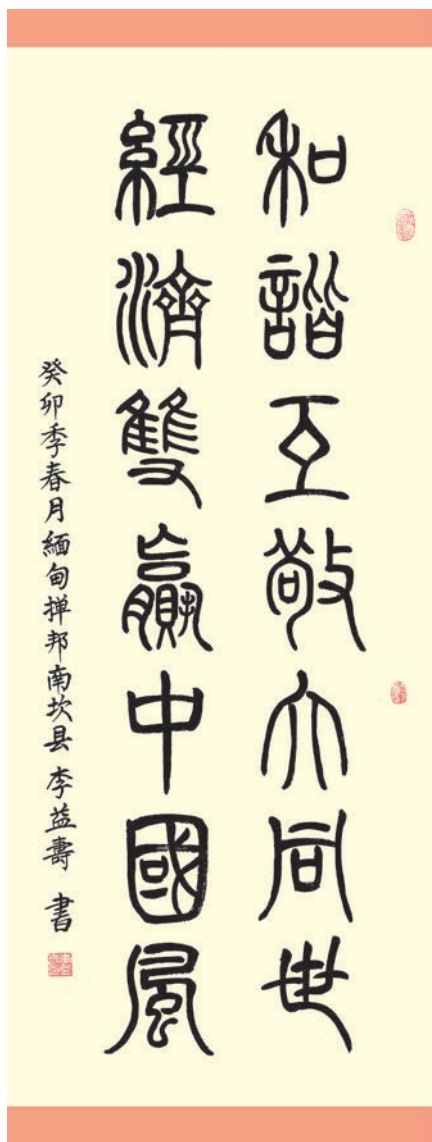 和諧互敬大同世
經濟雙贏中國風
癸卯季春月緬甸掸邦南坎县李益壽 書